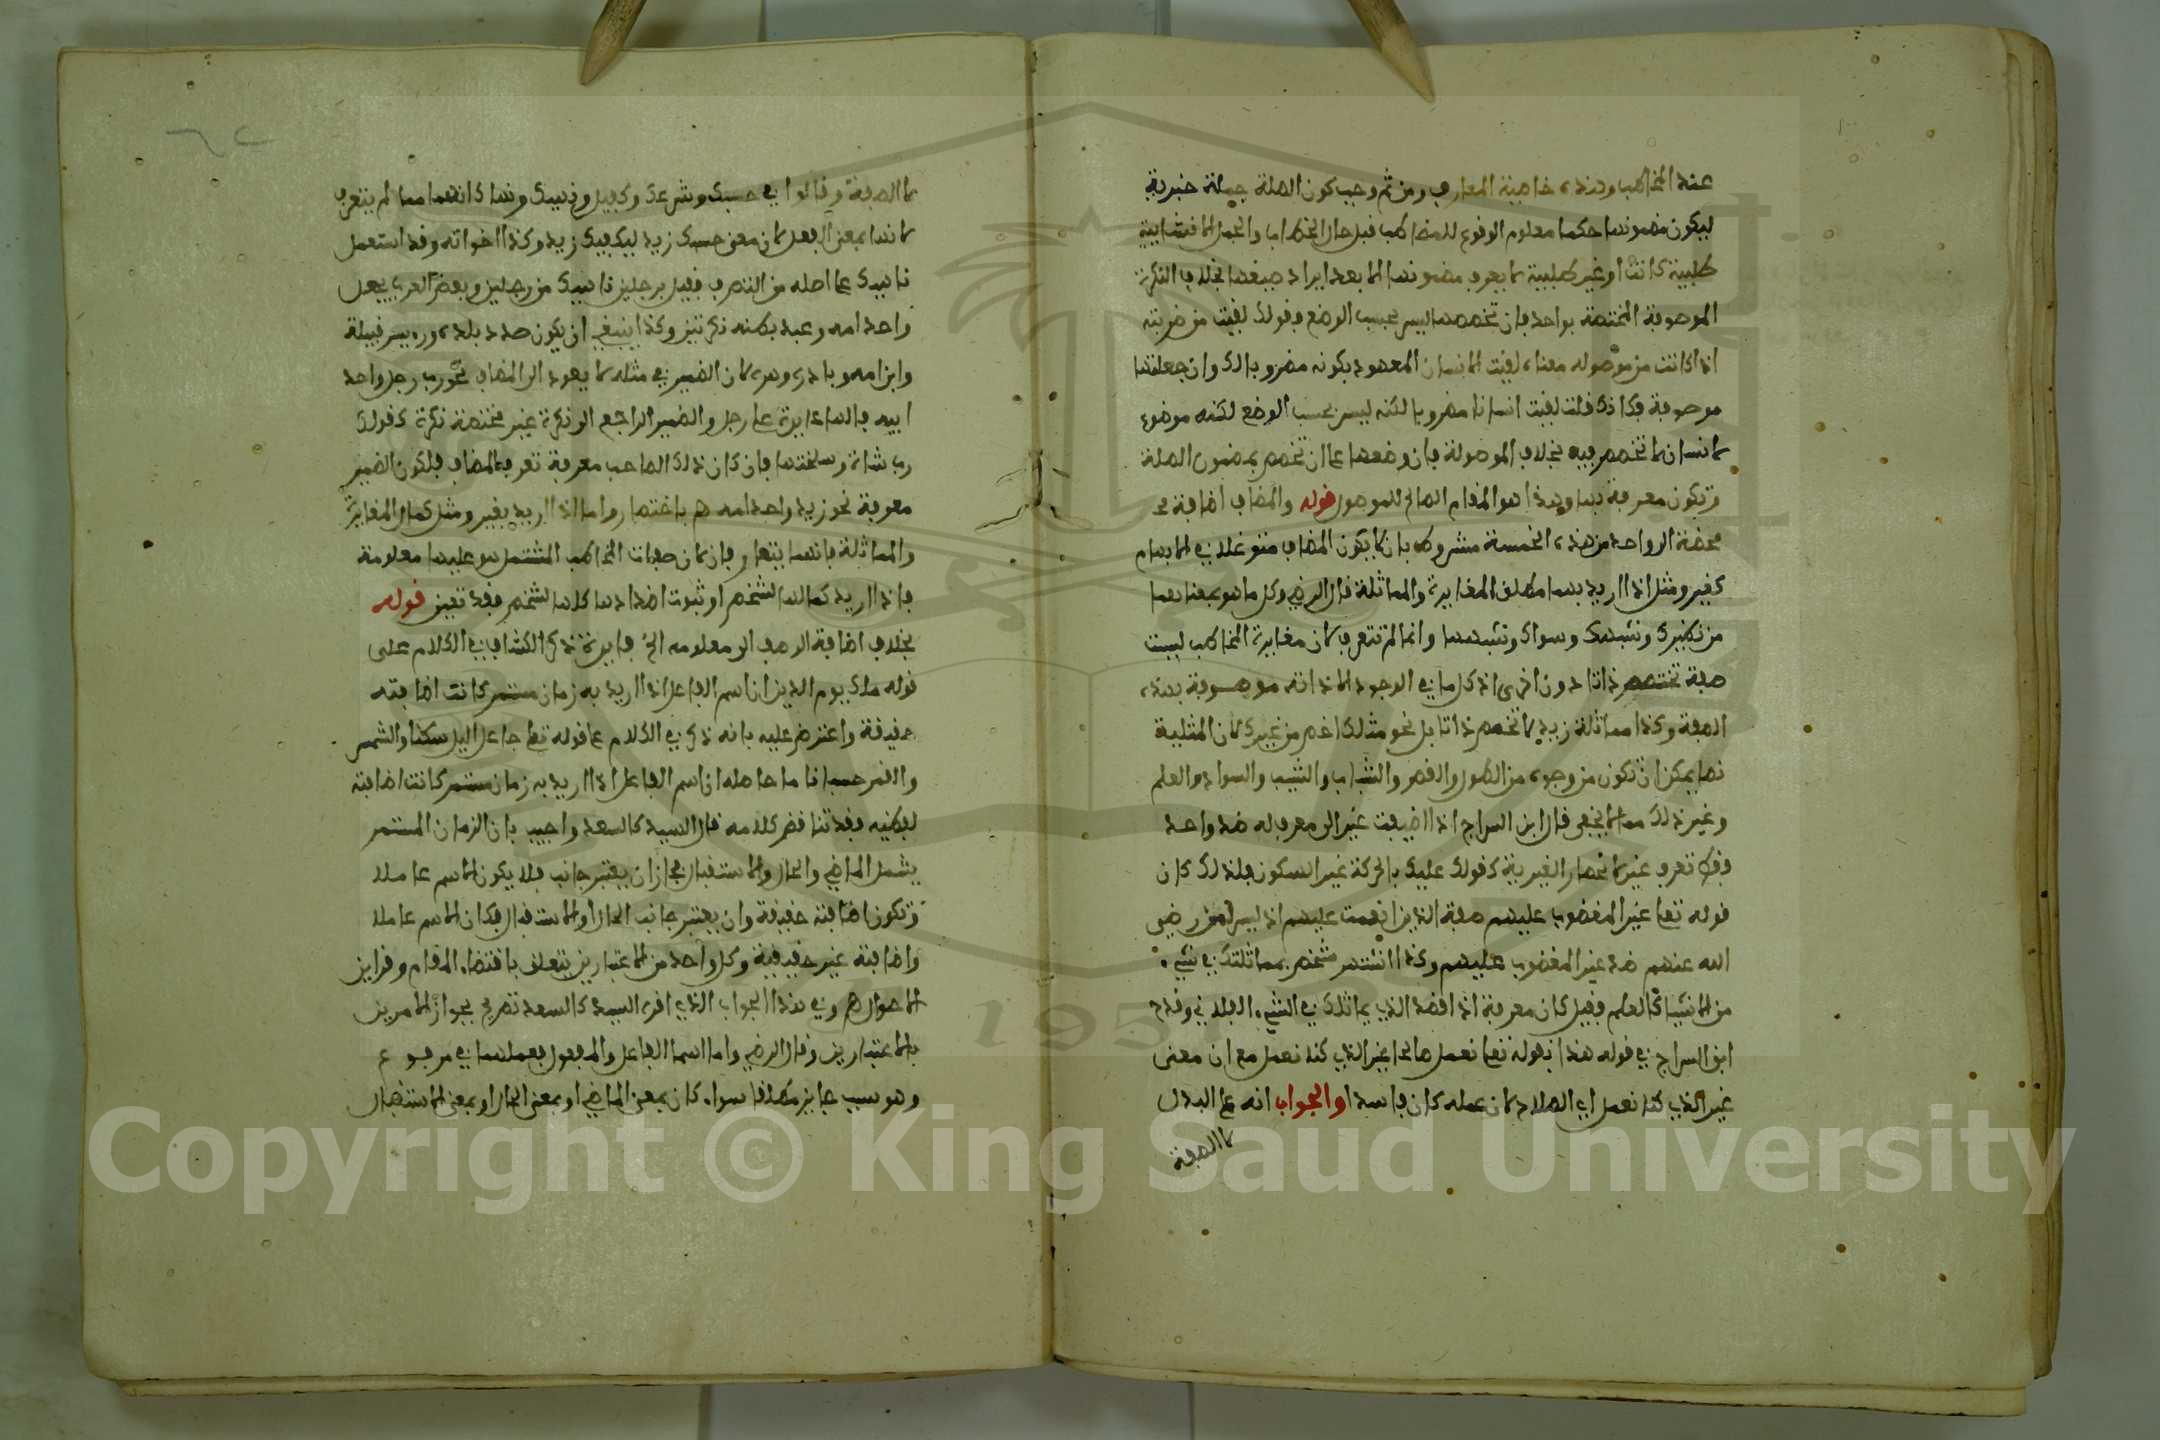 عند المخاطب وهذه خاصية المعارف ومن ثم وجب كون الصلة جملة خبرية
ليكون مضمونها حكما معلوم الوقوع للمخاطب قبل حال الخطاب والجمل الانشائية
طلبية كانت او غير طلبية لا يعرف مضمونها الا بعد ايراد صيغها بخلاف النكرة
الموصوفة المختصة بواحد فان تخصصها ليس بحسب الوضع فقولك لقيت من ضربته
اذا كانت من موصوله معناه لقيت الانسان المعهود بكونه مضروبا لك وان جعلتها
موصوفة فكانك قلت لقيت انسانا مضروبا لك لكنه ليس بحسب الوضع لكنه موضوع
لانسان لا تخصص فيه بخلاف الموصولة فان وضعها على ان تخصص بمضمون الصلة
وتكون معرفة بها وهذا هو المقام الصالح للموصول قوله والمضاف اضافة
محضة الى واحد من هذه الخمسة مشروط بان لا يكون المضاف متوغلا في الابهام
كغير ومثل اذا اريد بهما مطلق المغايرة والمماثلة قال الرضي وكل ما هو بمعناهما
من نظيرك وشبهك وسواك وشبهها وانما لم تتعرف لان مغايرة المخاطب ليست
صفة تختص ذاتا دون اخرى اذ كل ما في الوجود الا ذاته موصوفة بهذه
الصفة وكذا مماثلة زيد لا تخص ذاتا بل نحو مثلك اخص من غيرك لان المثلية
ايضا يمكن ان تكون من وجوه من الطول والقصر والشباب والشيب والسواد والعلم
وغير ذلك مما لا يخفى قال ابن السراج اذا اضيفت غير الى معرف له ضد واحد
فقط تعرف غير لانحصار الغيرية كقولك عليك بالحركة غير السكون فلذلك كان
قوله تعالى غير المغضوب عليهم صفة الذين انعمت عليهم اذ ليس لمن رضي
الله عنهم ضد غير المغضوب عليهم وكذا اذا اشتهر شخص بمماثلتك في شيء
من الاشياء كالعلم فقيل كان معرفة اذا قصد الذي يماثلك في الشيء الفلاني وقدح
ابن السراج في قوله هذا بقوله تعالى نعمل صالحا غير الذي كنا نعمل مع ان معنى
غير الذي كنا نعمل اي الصلاح لان عمله كان فاسدا والجواب انه على البدل
لا الصفة
لا الصفة وقالوا في حسبك وشرعك وكفيك وناهيك ونهاك انهما مما لم يتعرف
لانها بمعنى الفعل لان معنى حسبك زيد ليكفيك زيد وكذا اخواته وقد استعمل
ناهيك على اصله من التصرف فقيل برجلين ناهيك من رجلين وبعض العرب يجعل
واحد امه وعبد بطنه نكرتين وكذا ينبغي ان يكون صدر بلده ورئيس قبيلة
وابن امه ونادرة دهره لان الضمير في مثله لا يعود الى المضاف نحو رب رجل واحد
ابيه فالهاء عائدة على رجل والضمير الراجع الى نكرة غير مختصة نكرة كقولك
رب شاة وسخلتها فان كان ذلك الصاحب معرفة تعرف المضاف فلكون الضمير
معرفة نحو زيد واحد امه هم باختصار واما اذا اريد بغير ومثل كمال المغايرة
والمماثلة فانها يتعارف فان لان صفات المخاطب المشتمل هو عليها معلومة
فاذا اريد كمالها لشخص او ثبوت اضدادها كلها لشخص فقد تعين قوله
بخلاف اضافة الوصف الى معلومه الخ فايدة ذكر الكشاف في الكلام على
قوله ملك يوم الدين ان اسم الفاعل اذا اريد به زمان مستمر كانت اضافته
حقيقة واعترض عليه بانه ذكر في الكلام على قوله تعالى جاعل الليل سكنا والشمس
والقمر حسبانا ما حاصله ان اسم الفاعل اذا اريد به زمان مستمر كانت اضافته
لفظية فقد تناقض كلامه قال السيد كالسعد واجيب بان الزمان المستمر
يشمل الماضي والحال والاستقبال فجاز ان يعتبر جانب فلا يكون الاسم عاملا
وتكون اضافته حقيقة وان يعتبر جانب الحال او الاستقبال فكان الاسم عاملا
واضافته غير حقيقية وكل واحد من الاعتبارين يتعلق باقتضاء المقام وقراين
الاحوال هم وفي هذا الجواب الذي اقره السيد كالسعد تصريح بجواز الامرين
بالاعتبارين وقال الرضي واما اسما الفاعل والمفعول فعملهما في مرفوع
وهو سبب جايز مطلقا سواء كان بمعنى الماضي او بمعنى الحال او بمعنى الاستقبال
Copyright © King Saud University
1957